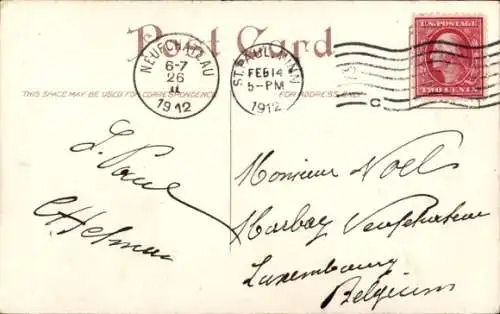 Post Card
NEUFCHATEAU
6-7
26
II
1912
ST. PAUL, MINN.
FEB 14
5-PM
1912
C
U.S. POSTAGE
TWO CENTS
THIS SPACE MAY BE USED FOR CORRESPONDENCE
FOR ADDRESS ONLY
St Paul
Monsieur Noel
Neufchateau
Luxembourg
Belgium